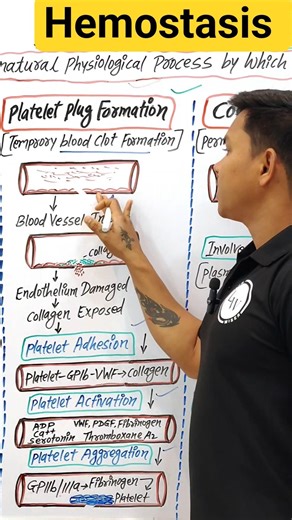 Hemostasis
natural Physiological Process by Which
Platelet Plug Formation
[Temprory blood Clot Formation]
Blood Vessel
colla
Endothelium Damaged
Collagen Exposed
Platelet Adhesion
Platelet-GPIb-VWF→collagen
Platelet Activation
ADP VWF, PDGF, Fibrinogen
Ca++
serotonin Thromboxane A2
Platelet Aggregation
GPIIb/IIIa→Fibrinogen
Platelet
Co
Involve
Plasm